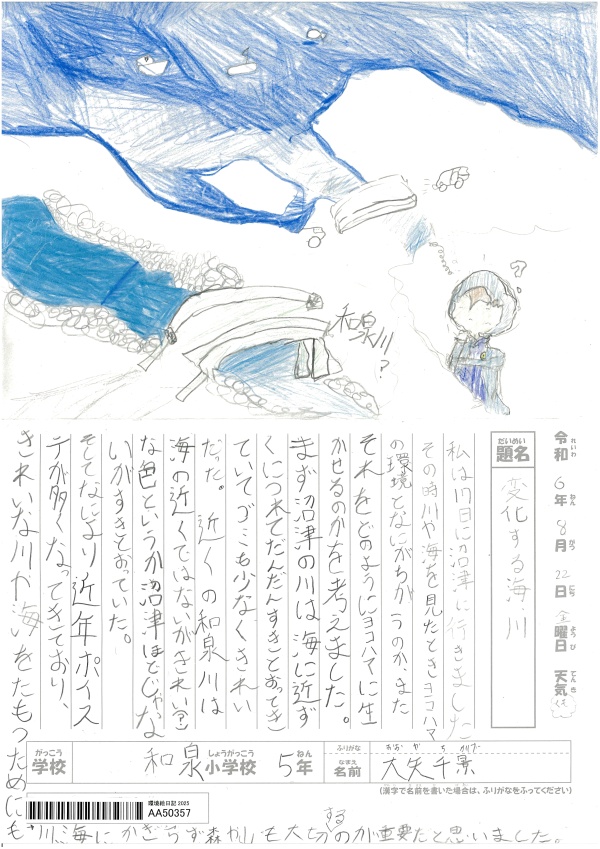 和泉川
?
?
令和6年8月22日金曜日 天気
れいわ ねん がつ にち ようび てんき
だいめい
題名 変化する海川
私は17日に沼津に行きました
その時川や海を見たときヨコハマ
の環境となにがちがうのか、また
それをどのようにヨコハマに生
かせるのかを考えました。
まず沼津の川は海に近ず
くにつれてだんだんすきとおってき
ていてゴミも少なくきれい
だった。近くの和泉川は
海の近くではないがきれい(?)
な色というか沼津ほどじゃな
いがすきとおっていた。
そしてなにより近年ポイス
テが多くなってきており、
きれいな川や海をたもつためにも
川海にかぎらず森や山も大切
する
のが重要だと思いました。
がっこう しょうがっこう ねん
学校 和泉小学校 5年
ふりがな おおや ちかげ
なまえ
名前 大矢千景
(漢字で名前を書いた場合は、ふりがなをふってください)
環境絵日記 2025
AA50357